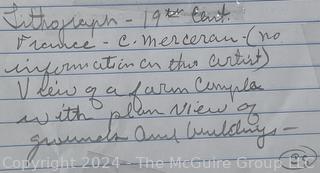 Lithograph - 19th Cent.
France - C. Merceran - (no
information on this artist)
View of a farm Complex
with plan view of
grounds and buildings -
Copyright 2024 - The McGuire Group LLC